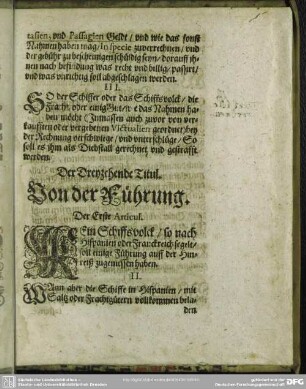 tassien, vnd Passagien Gelde / vnd wie das sonst
Nahmen haben mag / In specie zuverrechnen / vnd
der gebühr zu bescheinigen schüldig seyn / darauff ih-
nen nach befindung was recht vnd billig, passirt /
vnd was vnrichtig soll abgeschlagen werden.
III.
SO der Schiffer oder das Schiffsvolck / die
Fracht oder einig Gut / das Nahmen ha-
ben möcht / Inmassen auch zuvor von ver-
kaufften oder vergebenen Victualien geordnet / bey
der Rechnung verschwiege / vnd vnterschlüge / So
soll es ihm als Diebstall gerechnet vnd gestrafft
werden.
Der Dreyzehende Titul.
Von der Führung.
Der Erste Articul.
EIn Schiffsvolck / so nach
Hispanien oder Franckreich segelt /
soll einige Führung auff der Hin-
reiß zugeniessen haben.
II.
WAnn aber die Schiffe in Hispanien / mit
Saltz oder Frachtgütern vollkommen bela-
den